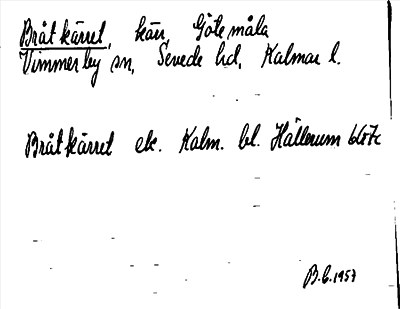 Bråtkärret, kärr, Götemåla
Vimmerby sn, Sevede hd, Kalmar l.
Bråtkärret ek. Kalm. bl. Hällerum 6b7c
B.C. 1957